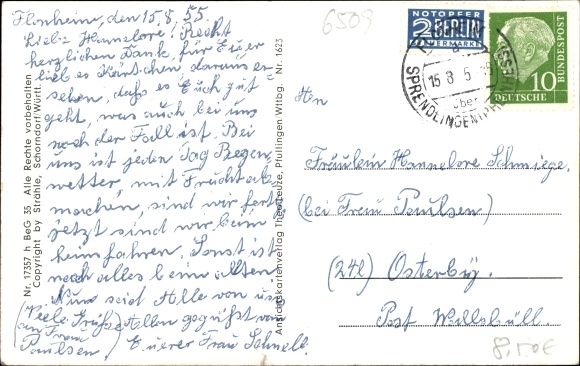 Flonheim, den 15.8.55.
Liebe Hannelore! Recht
herzlichen Dank, für Euer
liebes Kärtchen daraus er-
sehen, dass es Euch gut
geht, was auch bei uns
noch der Fall ist. Bei
uns ist jeden Tag Regen-
wetter, mit Frucht ab-
machen, sind wir fertig
jetzt sind wir beim
heimfahren. Sonst ist
noch alles beim alten.
Nun seid Alle von uns
Allen gegrüßt von
Eurer Frau Schnell.
(Viele Grüße
an Frau
Paulsen)
6509
NOTOPFER
2 BERLIN
STEUERMARKE
DEUTSCHE BUNDESPOST
10
15.8.5
über
SPRENDLINGEN
An
Fräulein Hannelore Schmiege.
(bei Frau Paulsen)
(24b) Osterby.
Post Wellsbüll.
8,50€
Nr. 17357 h BeG 35 Alle Rechte vorbehalten
Copyright by Strähle, Schorndorf/Württ.
Ansichtskartenverlag Theo Leuze, Pfullingen Wttbg. Nr. 1623